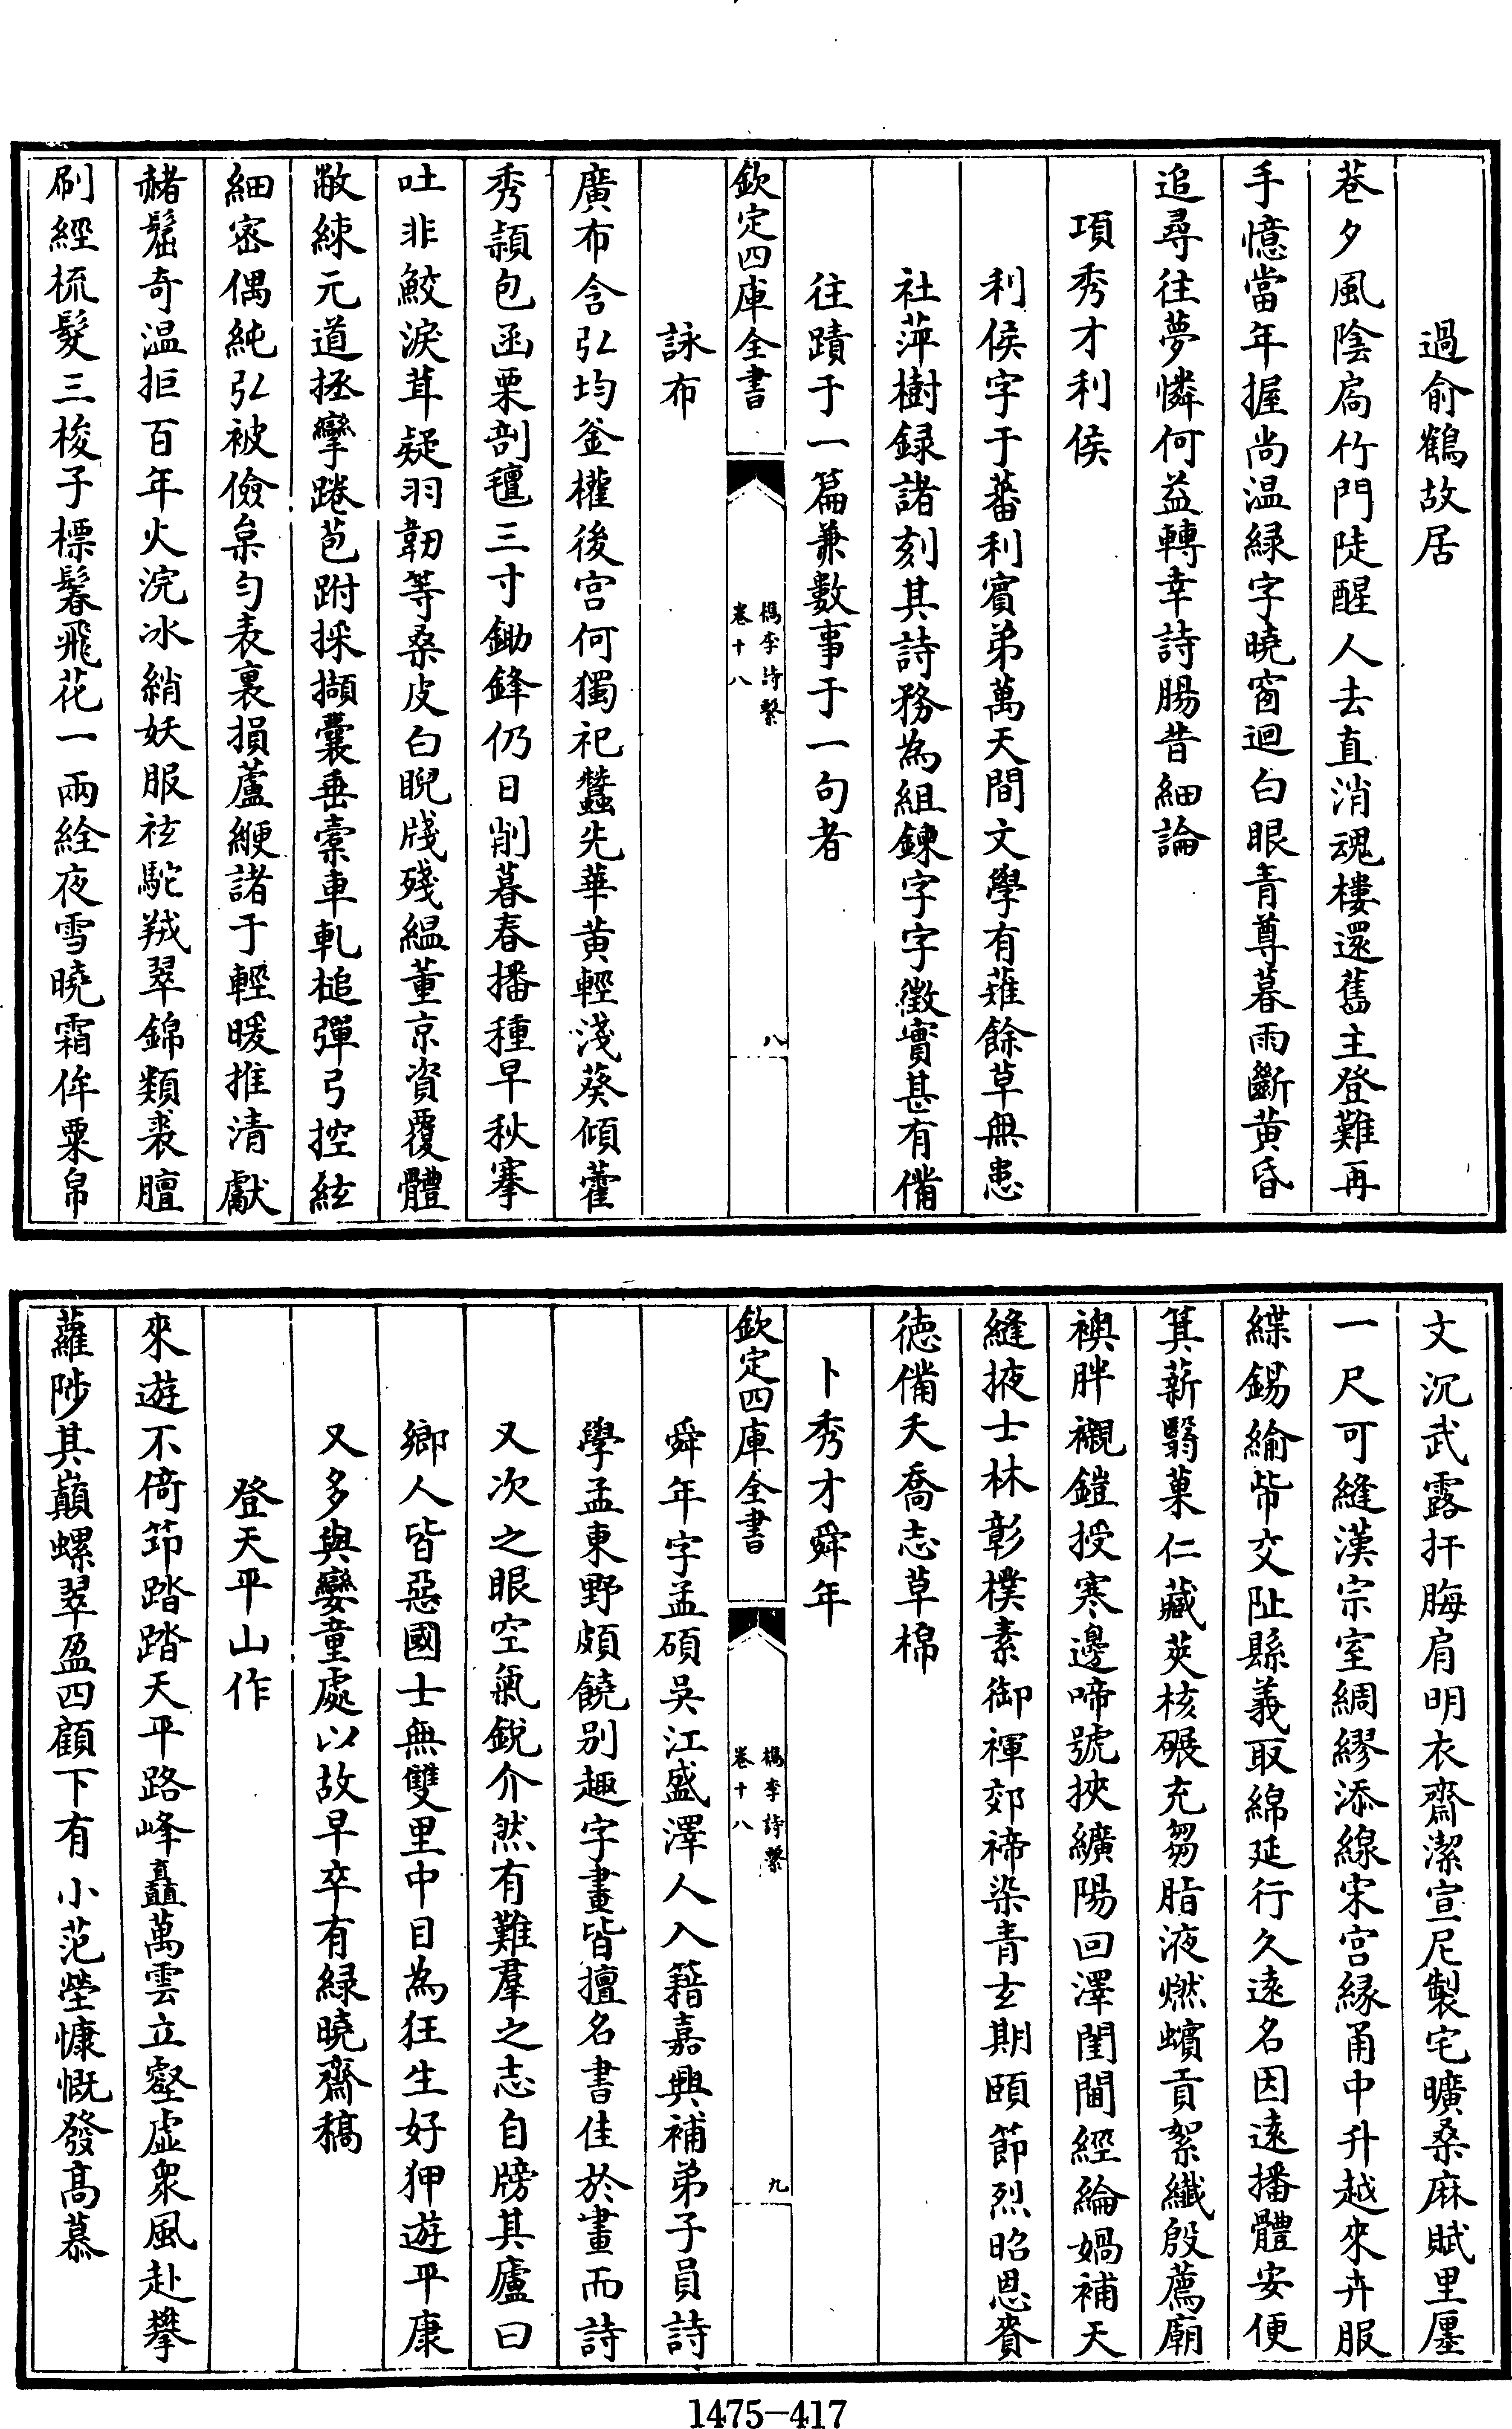 過俞鶴故居
巷夕風陰扄竹門陡醒人去直消魂樓還舊主登難再
手憶當年握尚温緑字曉窗迴白眼青尊暮雨斷黄昏
追尋往夢憐何益轉幸詩腸昔細論
項秀才利侯
利侯字于蕃利賓弟萬天間文學有薙餘草無患
社萍樹録諸刻其詩務為組鍊字字徵實甚有備
往蹟于一篇兼數事于一句者
欽定四庫全書
檇李詩繫
卷十八
八
詠布
廣布含弘均釜權後宫何獨祀蠶先華黄輕淺葵傾藿
秀頴包函栗剖氊三寸鋤鋒仍日削暮春播種早秋搴
吐非鮫淚茸疑羽韌等桑皮白睨牋殘緼董京資覆體
敝練元道拯攣踡苞跗採擷囊垂橐車軋槌彈弓控絃
細密偶純弘被儉枲匀表裏損蘆緶諸于輕暖推清獻
赭䰇奇温拒百年火浣冰綃妖服袨駝羢翠錦類裘膻
刷經梳髮三梭子標鬈飛花一兩絟夜雪曉霜侔粟帛
文沉武露扞晦肩明衣齋潔宣尼製宅曠桑麻賦里廛
一尺可縫漢宗室綢繆添線宋宫緣甬中升越來卉服
緤錫緰帋交阯縣義取綿延行久遠名因遠播體安便
箕薪翳菓仁藏莢核碾充芻脂液燃蠙貢絮纖殷薦廟
襖胖襯鎧授寒邊啼號挾纊陽回澤閨閫經綸媧補天
縫掖士林彰樸素御褌郊褅染青玄期頤節烈昭恩賚
徳備夭喬志草棉
卜秀才舜年
欽定四庫全書
檇李詩繫
卷十八
九
舜年字孟碩吳江盛澤人入籍嘉興補弟子員詩
學孟東野頗饒别趣字畫皆擅名書佳於畫而詩
又次之眼空氣銳介然有難羣之志自牓其廬曰
鄉人皆惡國士無雙里中目為狂生好狎遊平康
又多與孌童處以故早卒有緑曉齋稿
登天平山作
來遊不倚笻踏踏天平路峰矗萬雲立壑虚衆風赴攀
蘿陟其巔螺翠盈四顧下有小范塋慷慨發髙慕
1475-417